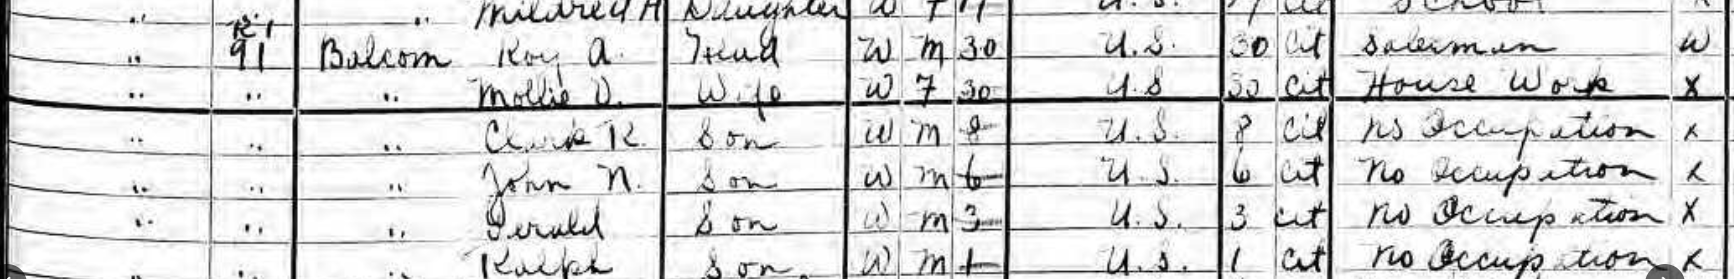 " " Mildred H Daughter W F 11 U.S. 11 Cit School x
" R1 91 Balcom Roy A. Head W M 30 U.S. 30 Cit Salesman W
" " " Mollie V. Wife W F 30 U.S 30 Cit House Work x
" " " Clark R. Son W M 8 U.S. 8 Cit No Occupation x
" " " John N. Son W M 6 U.S. 6 Cit No Occupation x
" " " Gerald Son W M 3 U.S. 3 Cit No Occupation x
" " " Ralph Son W M 1 U.S. 1 Cit No Occupation x